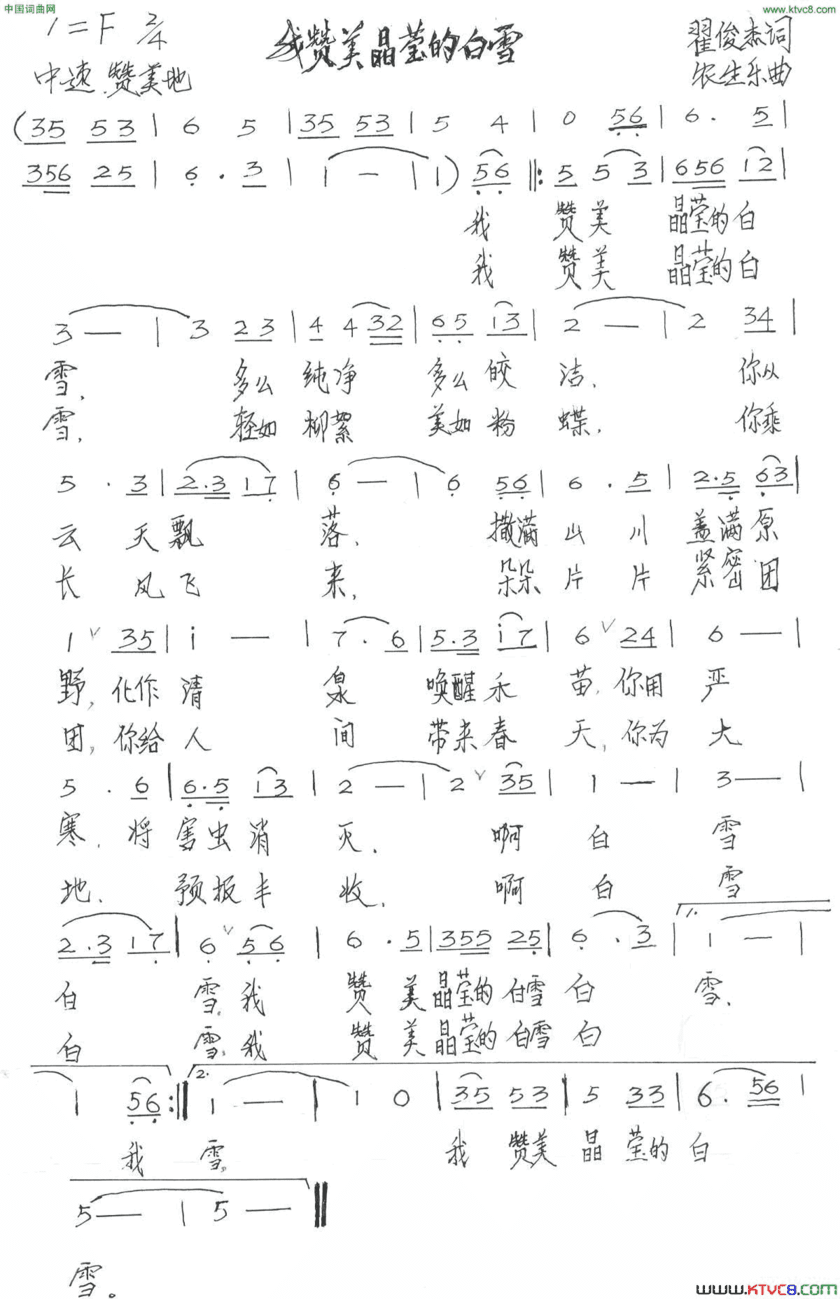 中国词曲网
www.ktvc8.com
1=F 2/4
我赞美晶莹的白雪
翟俊杰词
中速 赞美地
农生乐曲
(35 53 | 6 5 | 35 53 | 5 4 | 0 56 | 6. 5 |
356 25 | 6. 3 | 1 — | 1) 56 |: 5 5 3 | 656 12 |
我 赞美 晶莹的白
我 赞美 晶莹的白
3 — | 3 23 | 4 432 | 65 13 | 2 — | 2 34 |
雪, 多么纯净 多么皎洁. 你从
雪, 轻如柳絮 美如粉蝶, 你乘
5. 3 | 2.3 17 | 6 — | 6 56 | 6. 5 | 2.5 63 |
云天飘落, 撒满山川盖满原
长风飞来, 朵朵片片紧密团
1 ∨ 35 | i — | 7. 6 | 5.3 i7 | 6 ∨ 24 | 6 — |
野, 化作清泉 唤醒禾苗, 你用严
团, 你给人间 带来春天, 你为大
5. 6 | 6.5 13 | 2 — | 2 ∨ 35 | 1 — | 3 — |
寒, 将害虫消灭, 啊白雪
地. 预报丰收, 啊白雪
2.3 17 | 6 ∨ 56 | 6. 5 | 355 25 | 6. 3 | 1. 1 — |
白雪, 我赞美晶莹的白雪白雪,
白雪, 我赞美晶莹的白雪白
1 56 :| 2. 1 — | 1 0 | 35 53 | 5 33 | 6. 56 |
我雪, 我赞美晶莹的白
5 — | 5 — ‖
雪。
www.KTVC8.COM